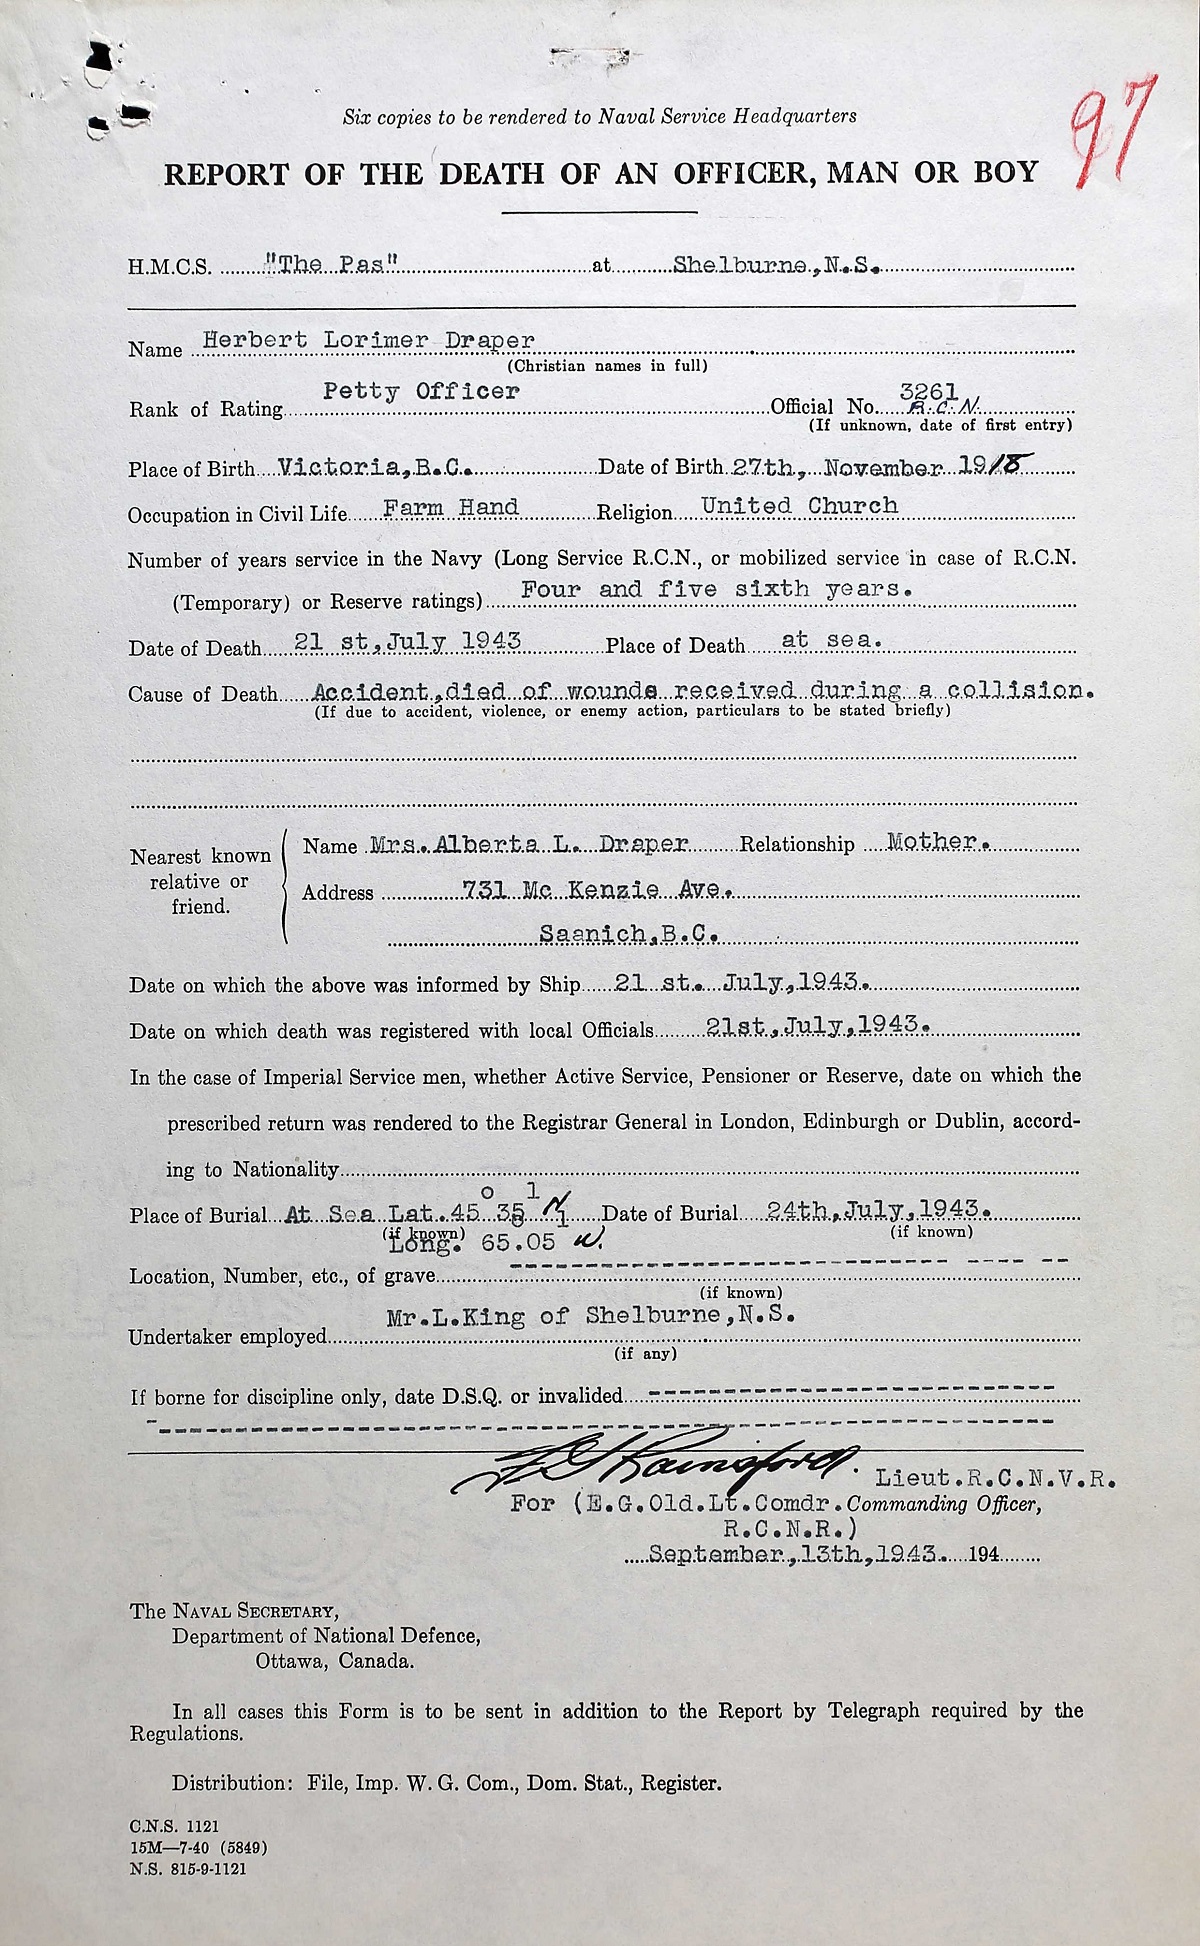 97
Six copies to be rendered to Naval Service Headquarters
REPORT OF THE DEATH OF AN OFFICER, MAN OR BOY
H.M.C.S. "The Pas" at Shelburne,N.S.
Name Herbert Lorimer Draper
(Christian names in full)
Rank of Rating Petty Officer Official No. 3261
R.C.N.
(If unknown, date of first entry)
Place of Birth Victoria,B.C. Date of Birth 27th, November 1918
Occupation in Civil Life Farm Hand Religion United Church
Number of years service in the Navy (Long Service R.C.N., or mobilized service in case of R.C.N.
(Temporary) or Reserve ratings) Four and five sixth years.
Date of Death 21 st,July 1943 Place of Death at sea.
Cause of Death Accident,died of wounds received during a collision.
(If due to accident, violence, or enemy action, particulars to be stated briefly)
Nearest known relative or friend.
Name Mrs. Alberta L. Draper Relationship Mother.
Address 731 Mc Kenzie Ave.
Saanich,B.C.
Date on which the above was informed by Ship 21 st. July,1943.
Date on which death was registered with local Officials 21st,July,1943.
In the case of Imperial Service men, whether Active Service, Pensioner or Reserve, date on which the
prescribed return was rendered to the Registrar General in London, Edinburgh or Dublin, accord-
ing to Nationality
Place of Burial At Sea Lat.45 N Date of Burial 24th,July,1943.
(if known) (if known)
Long. 65.05 W.
Location, Number, etc., of grave
(if known)
Undertaker employed Mr.L.King of Shelburne,N.S.
(if any)
If borne for discipline only, date D.S.Q. or invalided
Rainsford. Lieut.R.C.N.V.R.
For (E.G.Old.Lt.Comdr. Commanding Officer,
R.C.N.R.)
September,13th,1943. 194
The NAVAL SECRETARY,
Department of National Defence,
Ottawa, Canada.
In all cases this Form is to be sent in addition to the Report by Telegraph required by the
Regulations.
Distribution: File, Imp. W. G. Com., Dom. Stat., Register.
C.N.S. 1121
15M—7-40 (5849)
N.S. 815-9-1121